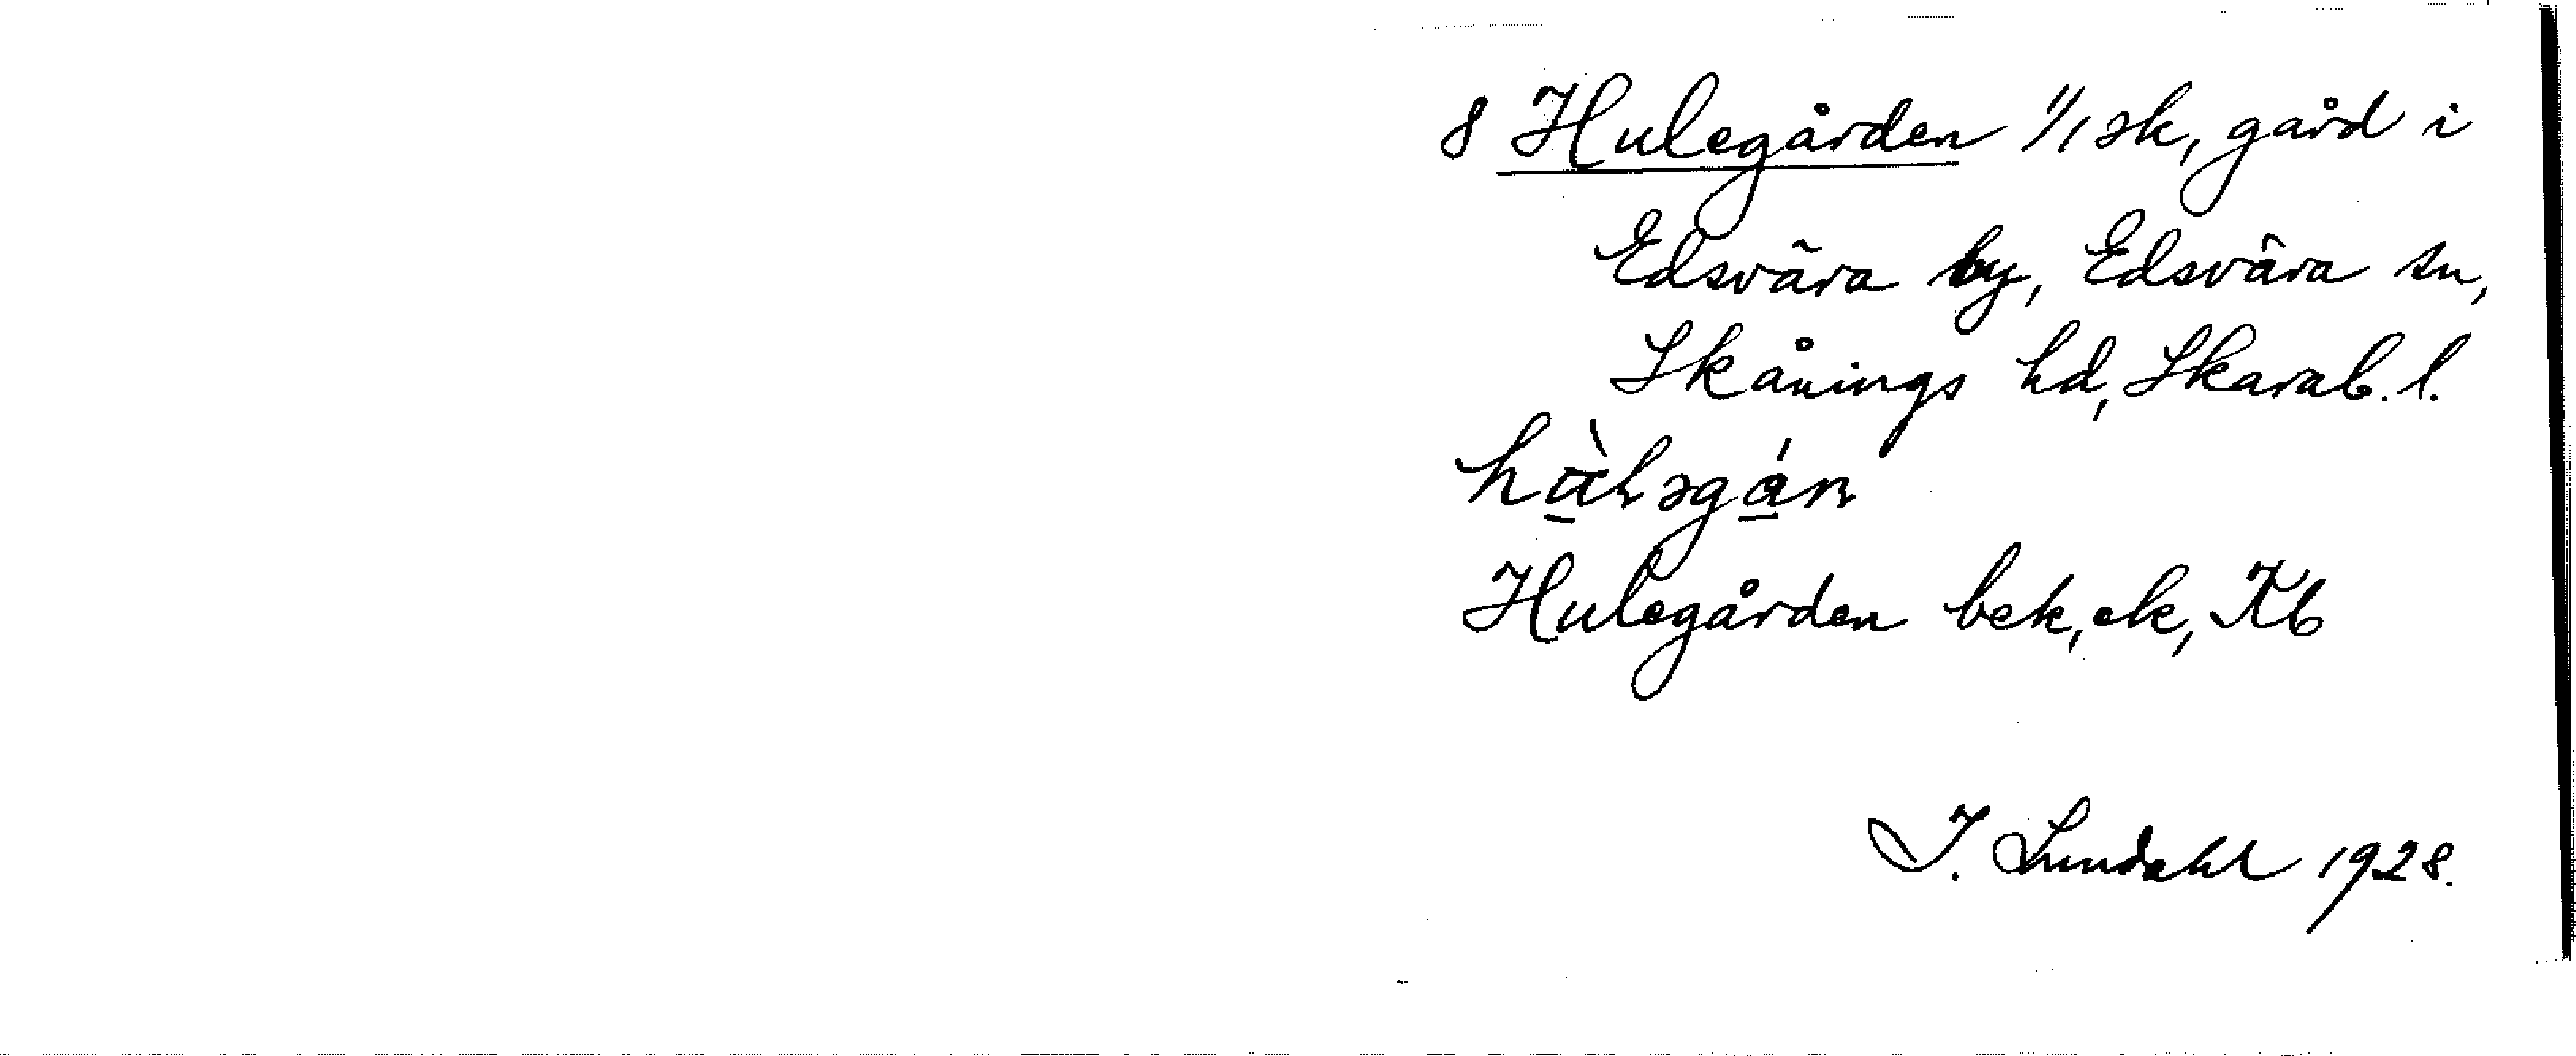 8 Hulegården 1/1 sk, gård i
Edsvära by, Edsvära sn,
Skånings hd, Skarab. l.
Hulegården bek, ek, Kb
I. Lundahl 1928.